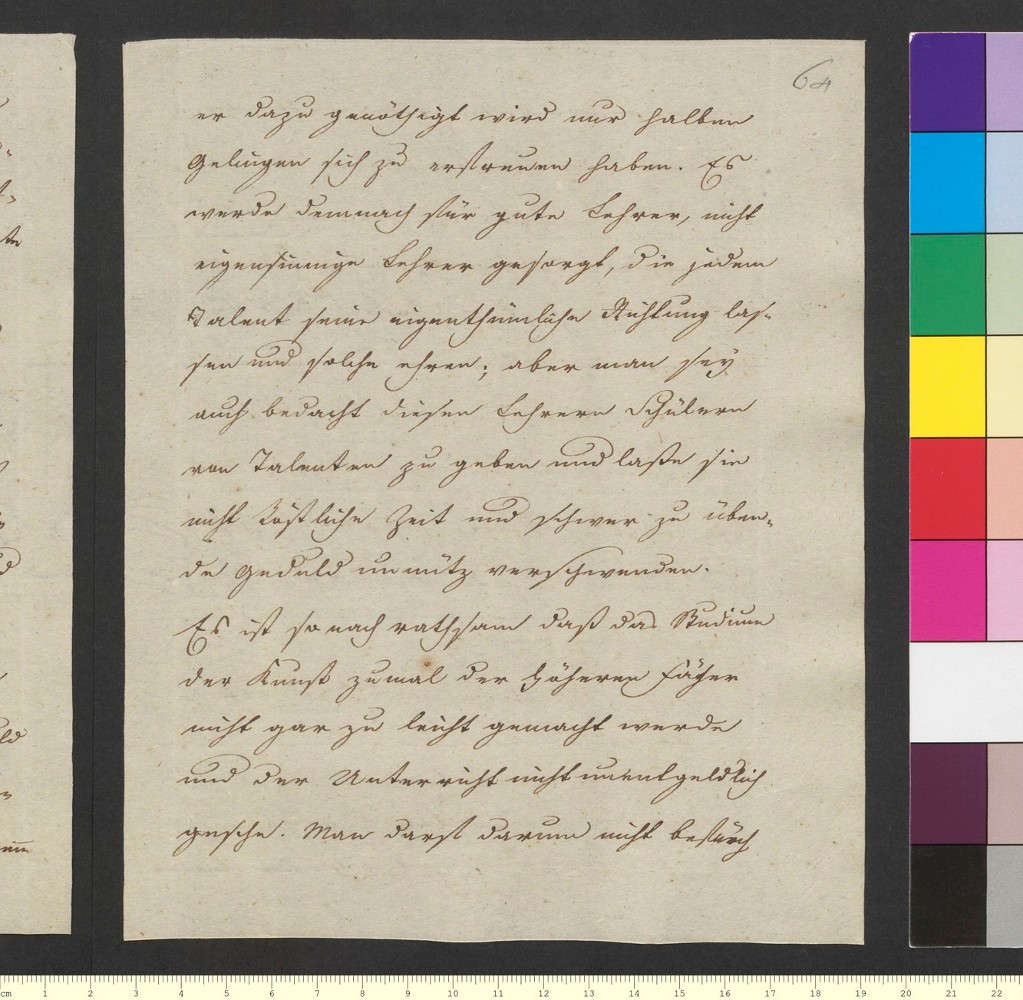 64
er dazu genöthigt wird nur halben
Gelingen sich zu erfreuen haben. Es
werde demnach für gute Lehrer, nicht
eigensinnige Lehrer gesorgt, die jedem
Talent seine eigenthümliche Richtung las-
sen und solche ehren; aber man sey
auch bedacht diesen Lehrern Schülern
von Talenten zu geben und laße sie
nicht köstliche Zeit und schwer zu üben-
de Geduld unnütz verschwenden.
Es ist sonach rathsam daß das Studium
der Kunst zumal der höheren Fächer
nicht gar zu leicht gemacht werde
und der Unterricht nicht unentgeldlich
gesche. Man darf darum nicht befürch